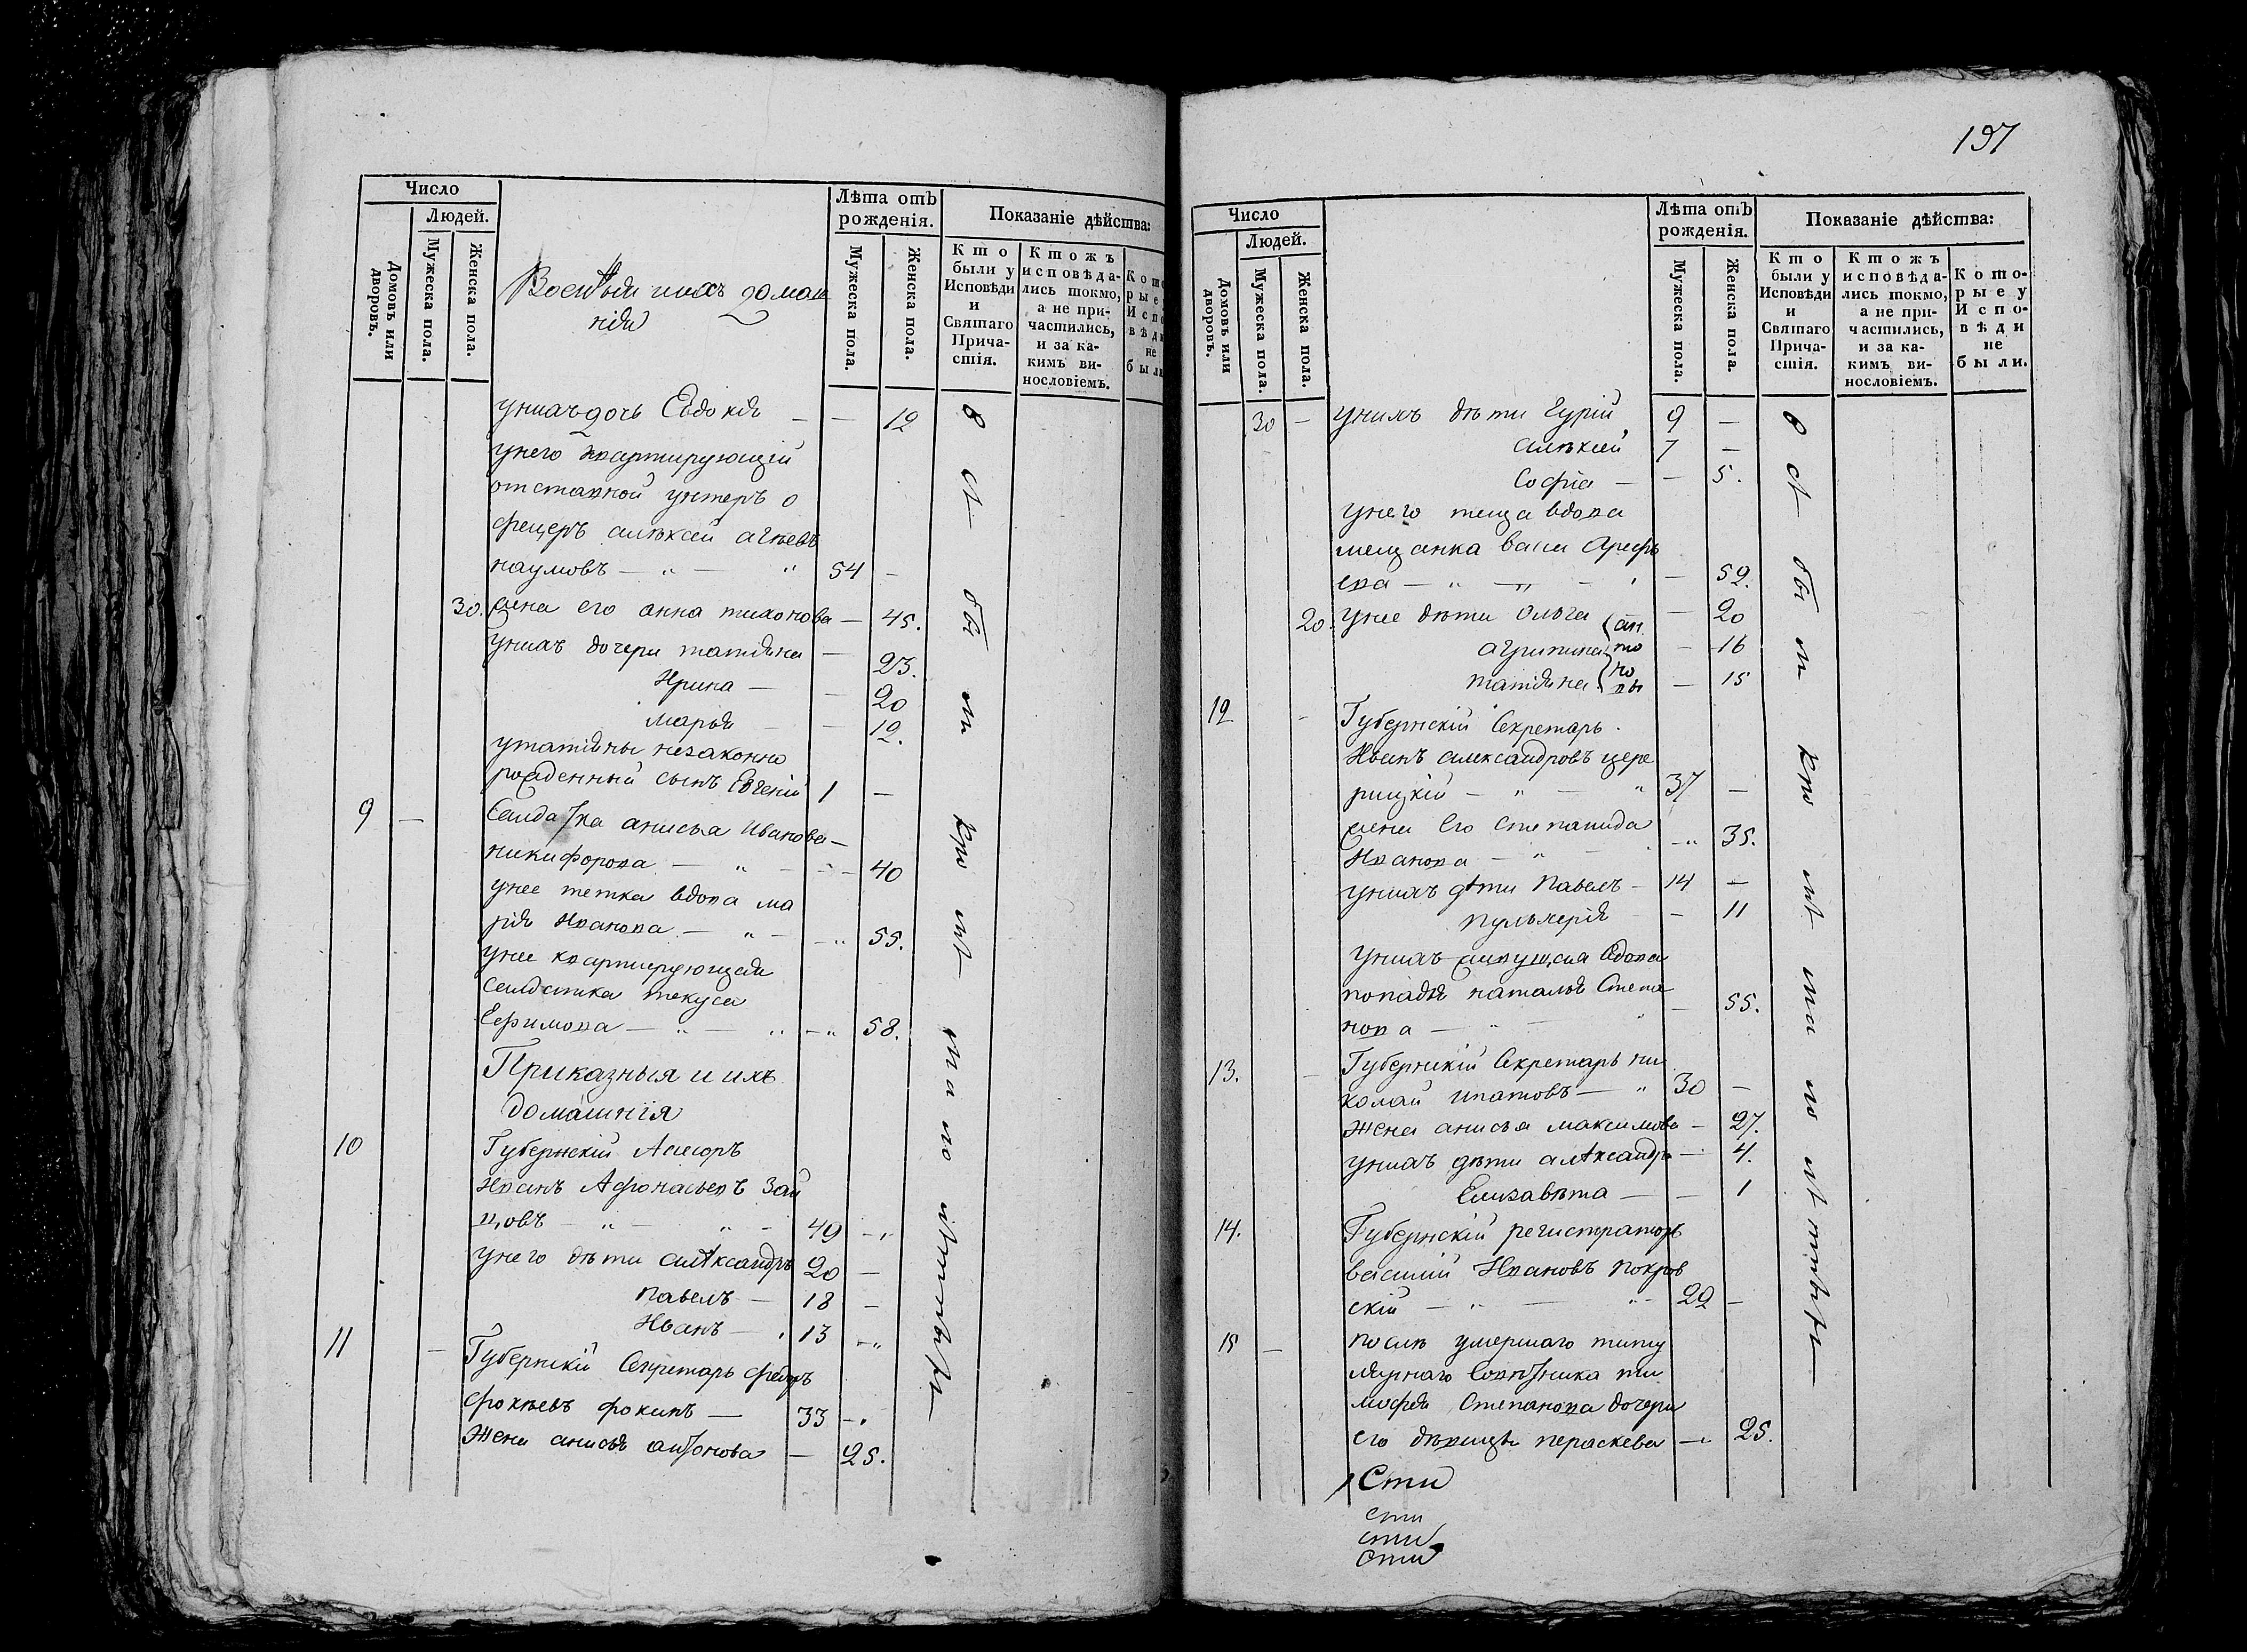 Число
Людей.
Домовъ или дворовъ.
Мужеска пола.
Женска пола.
Лѣта отъ рожденія.
Мужеска пола.
Женска пола.
Показаніе дѣйства:
Кто были у Исповѣди и Святаго Причастія.
Ктожъ исповѣдались токмо, а не причастились, и за какимъ винословіемъ.
домаш
нія
унихъ дочь Евдокія — — 12
унего квартирующій
отставной унтеръ о
фецеръ алѣксѣй
наумовъ — 54 —
30. жена его анна тихонова — 45.
унихъ дочери татіяна — 23.
Ирина — — 20
марья — — 12.
утатіяны незаконно
рожденный сынъ Евгеній 1 —
9 — Салдатка анисья Иванова
никифорова — 40
унее тетка вдова ма
рія Иванова — 55.
унее квартирующая
салдатка
Ефимова — 58.
Приказныя и ихъ
домашнія
10 Губернскій Асисоръ
Иванъ Афонасьевъ Зай
цовъ — 49 —
унего дѣти алѣксандръ 20 —
павелъ — 18 —
Иванъ — 13 —
11 — Губернскій Секретарь федоръ
фокѣевъ фокинъ — 33 —
Жена анисья антонова — 25.
197
Число
Людей.
Домовъ или дворовъ.
Мужеска пола.
Женска пола.
Лѣта отъ рожденія.
Мужеска пола.
Женска пола.
Показаніе дѣйства:
Кто были у Исповѣди и Святаго Причастія.
Ктожъ исповѣдались токмо, а не причастились, и за какимъ винословіемъ.
Которые у Исповѣди не были.
30 — унихъ дѣти Гурій 9 —
алѣксѣй 7 —
Софія — — 5.
унего теща вдова
мещанка Арефь
ева — — 59.
20. унее дѣти Ольга — 20
агрипина — 16
татіяна — 15
ан
то
но
вы
12 — Губернскій Секретарь
Иванъ александровъ цере
рицкій — 37 —
жена Его степанида
Иванова — 35.
унихъ дѣти Павелъ — 14 —
пульхерія — — 11
унихъ вдова
попадья наталья Степа
нова — — 55.
13. — Губернскій Секретарь ни
колай ипатовъ — 30 —
Жена анисья максимова — 27.
унихъ дѣти алѣксандра — 4.
Елизавѣта — — 1
14. Губернскій регистраторъ
василий Ивановъ покров
скій — 22 —
15 — послѣ умершаго титу
лярнаго Совѣтника ти
мофея Степанова дочери
его дѣвицы пераскева — 25.
Сти
сти
сти
сти